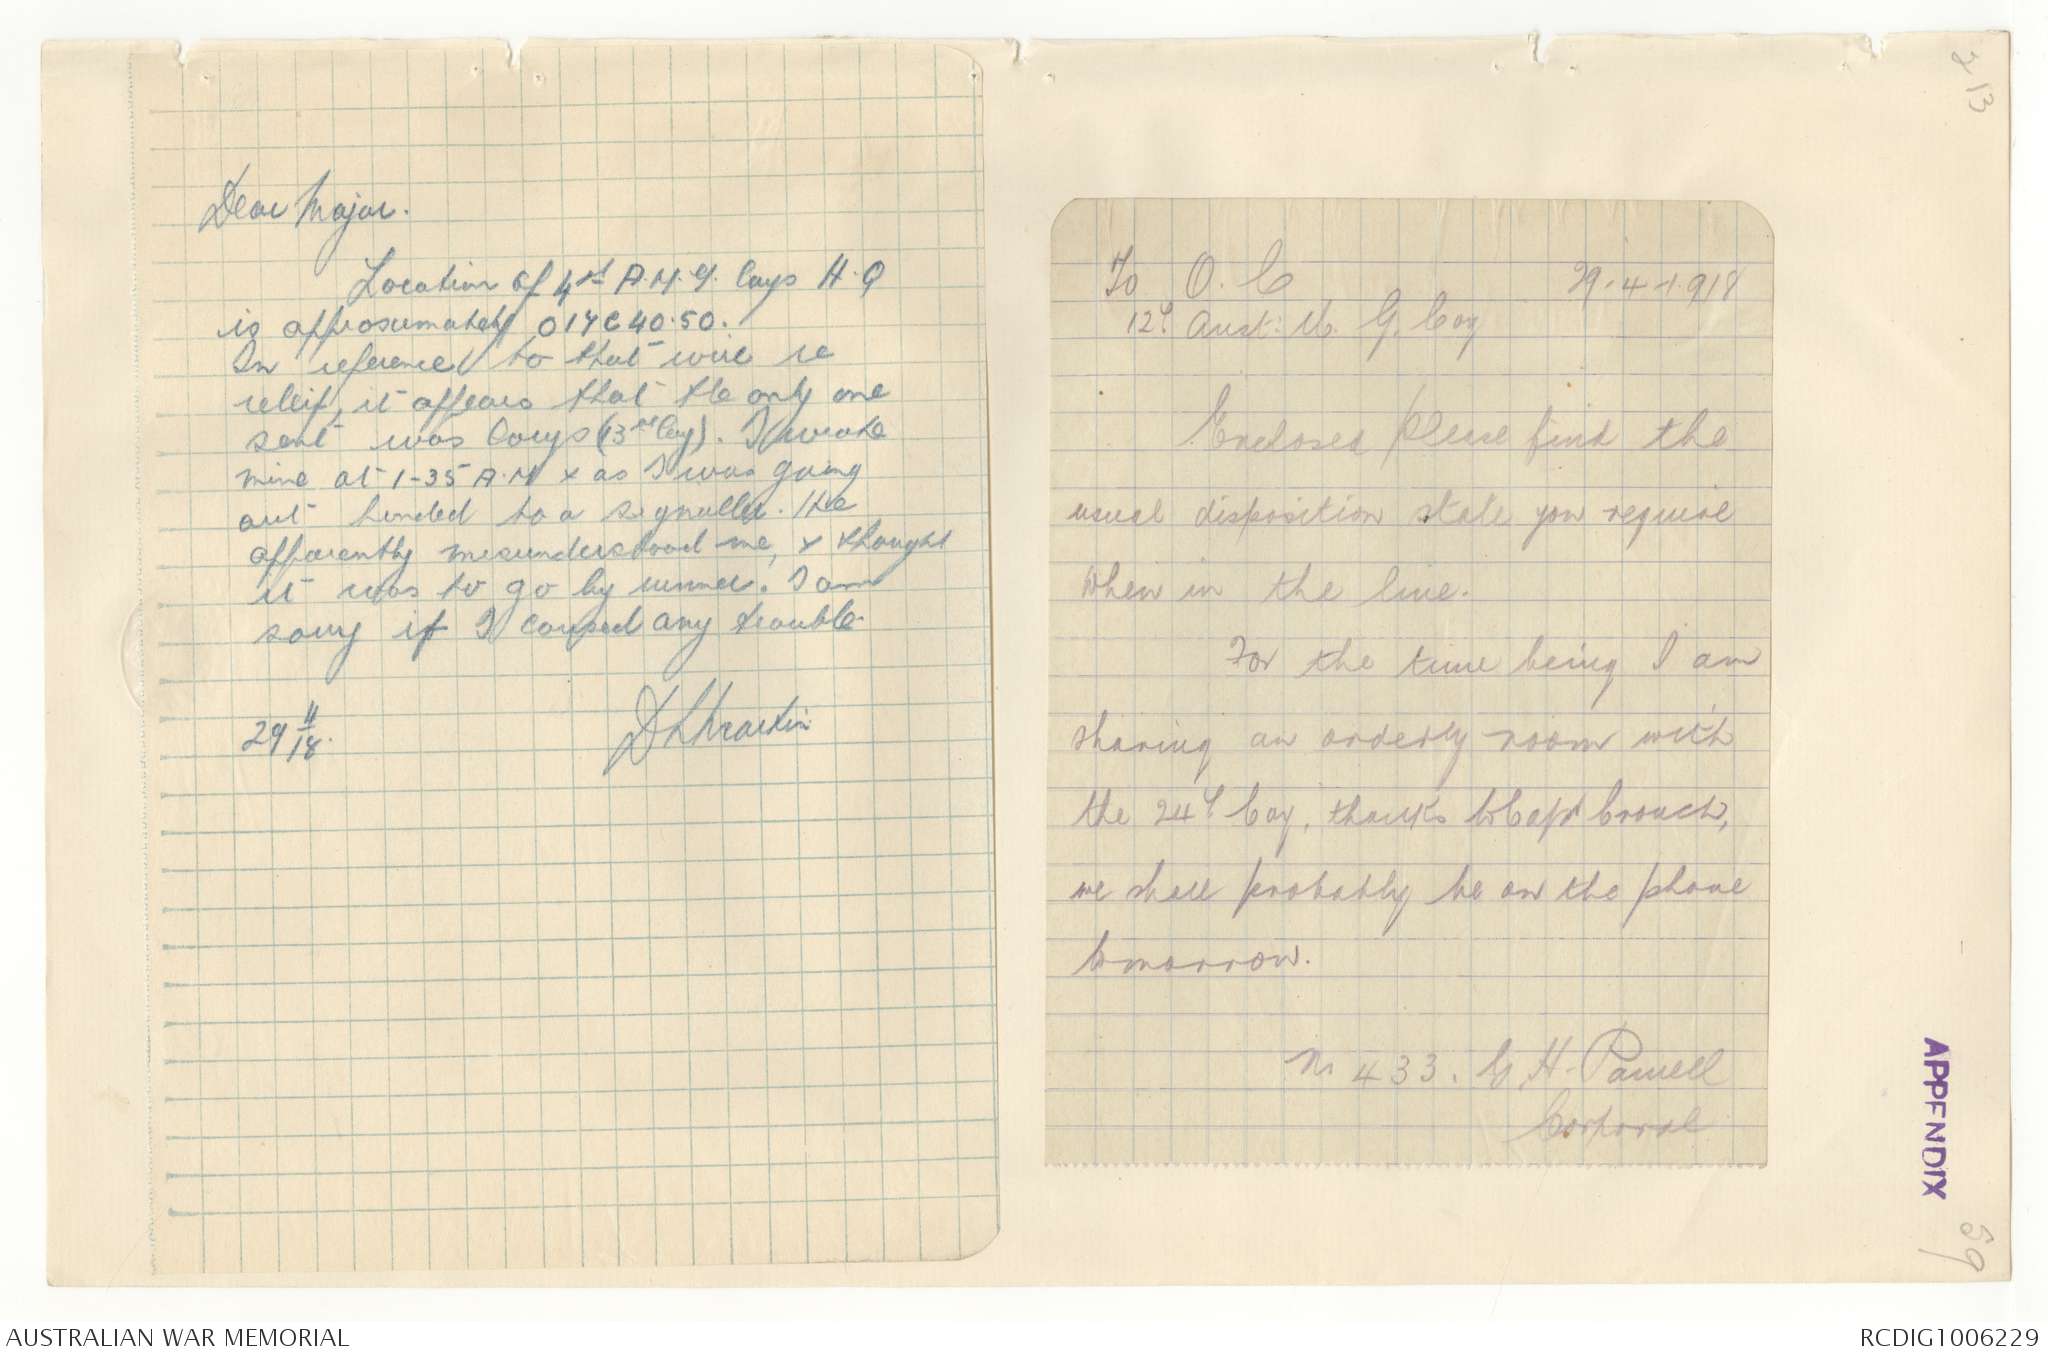 Dear Major.
Location of 4th A.M.G. Coys H.Q
is approximately O17C40.50.
In reference to that wire re
releif, it appears that the only one
sent was Corys (13th Coy). I wrote
mine at 1-35 A.M x as I was going
out handed to a signaller. He
apparently misunderstood me, x thought
it was to go by runner. I am
sorry if I caused any trouble.
29 4/18.
To O.C 29.4.1918
12th Aust: M. G. Coy
Enclosed please find the
usual disposition state you require
when in the line.
For the time being I am
sharing an orderly room with
the 24th Coy, thanks to Capt Crouch,
we shall probably be on the phone
tomorrow.
No 433. G H. Parnell
Corporal
213
APPENDIX
59
AUSTRALIAN WAR MEMORIAL
RCDIG1006229